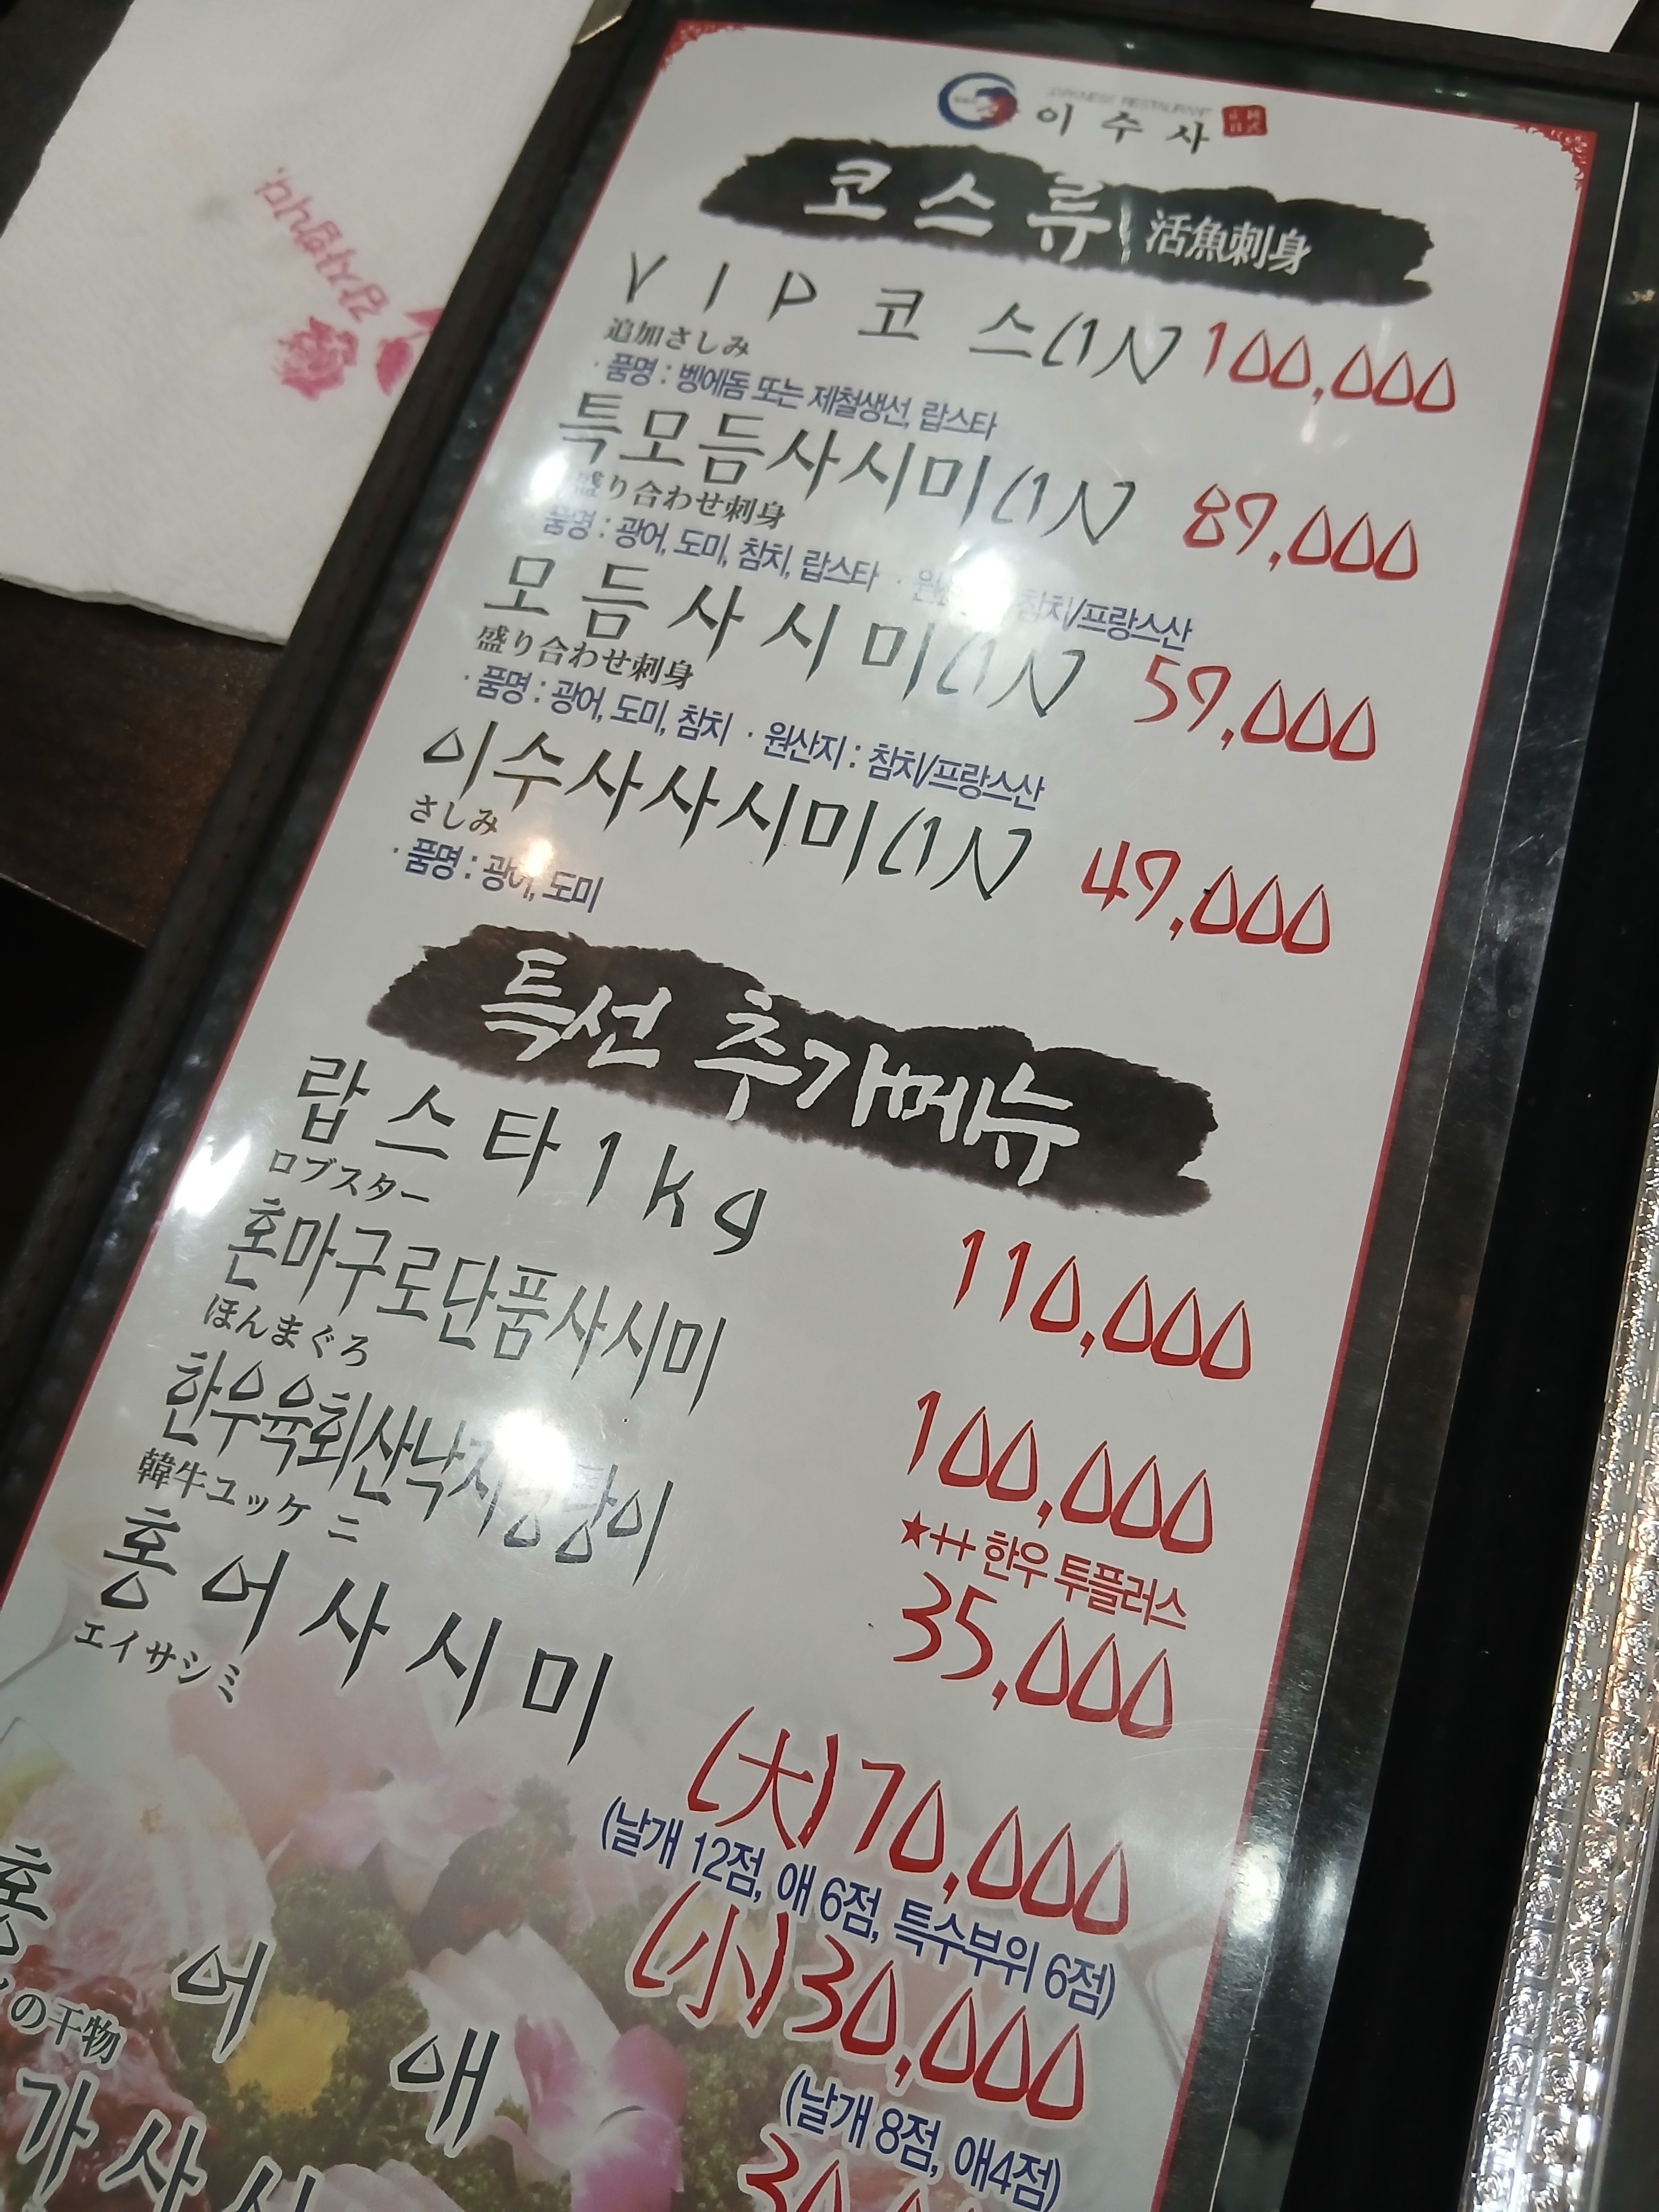 JAPANESE RESTAURANT
이수사
코스류 活魚刺身
VIP코스(1人) 100,000
追加さしみ
· 품명 : 벵에돔 또는 제철생선, 랍스타
특모듬사시미(1人) 89,000
盛り合わせ刺身
품명 : 광어, 도미, 참치, 랍스타 · 참치/프랑스산
모듬사시미(1人) 59,000
盛り合わせ刺身
· 품명 : 광어, 도미, 참치 · 원산지 : 참치/프랑스산
이수사사시미(1人) 49,000
さしみ
· 품명 : 광어, 도미
특선 추가메뉴
랍스타1kg 110,000
ロブスター
혼마구로단품사시미 100,000
ほんまぐろ
★++ 한우 투플러스
한우육회산낙지탕탕이 35,000
韓牛ユッケ ニ
홍어사시미 (大)70,000
エイサシミ
(날개 12점, 애 6점, 특수부위 6점)
(小)30,000
(날개 8점, 애4점)
홍어애
の干物